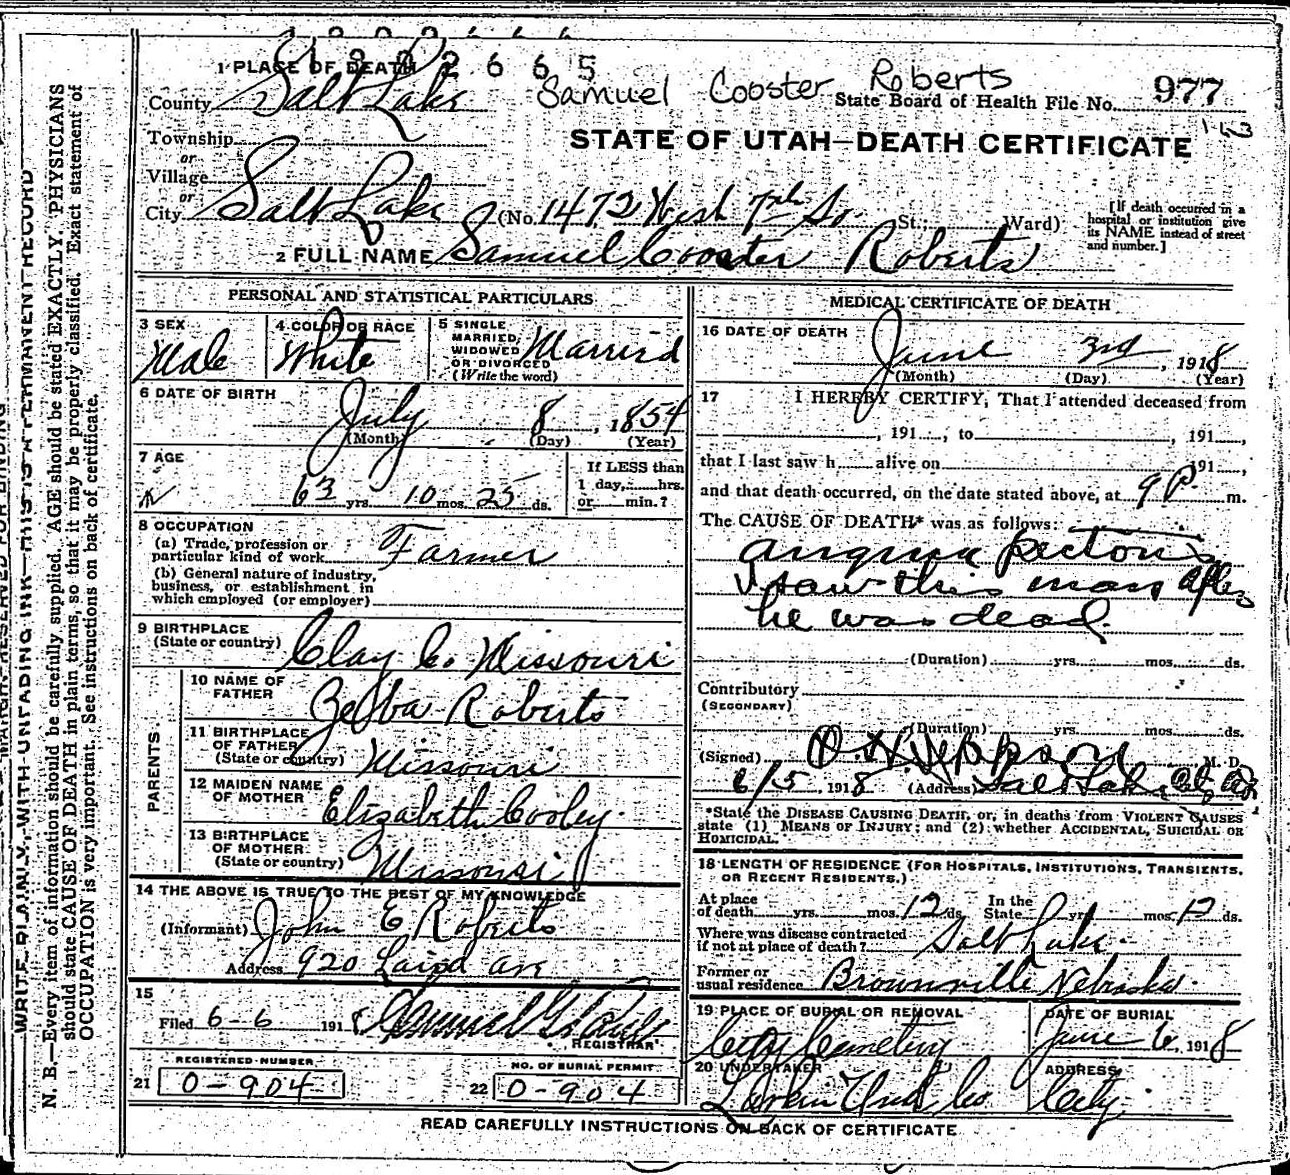 1822665
1 PLACE OF DEATH
Samuel Cooster Roberts
County Salt Lake
State Board of Health File No. 977
143
Township
or
Village
or
City Salt Lake (No. 1472 West 7th So. St.; Ward)
STATE OF UTAH—DEATH CERTIFICATE
[If death occurred in a hospital or institution give its NAME instead of street and number.]
2 FULL NAME Samuel Cooster Roberts
PERSONAL AND STATISTICAL PARTICULARS
3 SEX Male
4 COLOR OR RACE White
5 SINGLE MARRIED, WIDOWED OR DIVORCED (Write the word) Married
6 DATE OF BIRTH July 8, 1854
(Month) (Day) (Year)
7 AGE 63 yrs. 10 mos. 25 ds.
If LESS than
1 day, hrs.
or min.?
8 OCCUPATION
(a) Trade, profession or
particular kind of work Farmer
(b) General nature of industry,
business, or establishment in
which employed (or employer)
9 BIRTHPLACE
(State or country) Clay Co. Missouri
PARENTS
10 NAME OF FATHER Roberts
11 BIRTHPLACE OF FATHER (State or country) Missouri
12 MAIDEN NAME OF MOTHER Elizabeth Cooley
13 BIRTHPLACE OF MOTHER (State or country) Missouri
14 THE ABOVE IS TRUE TO THE BEST OF MY KNOWLEDGE
(Informant) John E Roberts
Address 920 Laird Ave
15
Filed 6-6 1918 Samuel G. Paul
REGISTRAR
REGISTERED NUMBER
21 0-904
NO. OF BURIAL PERMIT
22 0-904
MEDICAL CERTIFICATE OF DEATH
16 DATE OF DEATH June 3rd, 1918
(Month) (Day) (Year)
17 I HEREBY CERTIFY, That I attended deceased from
, 191 , to , 191 ,
that I last saw h alive on 191 ,
and that death occurred, on the date stated above, at 9 P. m.
The CAUSE OF DEATH* was as follows:
angina pectoris
I saw this man after
he was dead.
(Duration) yrs. mos. ds.
Contributory
(SECONDARY)
(Duration) yrs. mos. ds.
(Signed) Jeppson M. D.
6/5, 1918 (Address) Salt Lake City
*State the DISEASE CAUSING DEATH, or, in deaths from VIOLENT CAUSES
state (1) MEANS OF INJURY; and (2) whether ACCIDENTAL, SUICIDAL OR
HOMICIDAL.
18 LENGTH OF RESIDENCE (FOR HOSPITALS, INSTITUTIONS, TRANSIENTS,
OR RECENT RESIDENTS.)
At place of death yrs. mos. 12 ds. In the State yrs. mos. 12 ds.
Where was disease contracted
if not at place of death? Salt Lake.
Former or
usual residence Brownville Nebraska.
19 PLACE OF BURIAL OR REMOVAL
City Cemetery
DATE OF BURIAL
June 6, 1918
20 UNDERTAKER
Larkin Und Co
ADDRESS
City.
READ CAREFULLY INSTRUCTIONS ON BACK OF CERTIFICATE
WRITE PLAINLY, WITH UNFADING INK—THIS IS A PERMANENT RECORD
N. B.—Every item of information should be carefully supplied. AGE should be stated EXACTLY. PHYSICIANS
should state CAUSE OF DEATH in plain terms, so that it may be properly classified. Exact statement of
OCCUPATION is very important. See instructions on back of certificate.